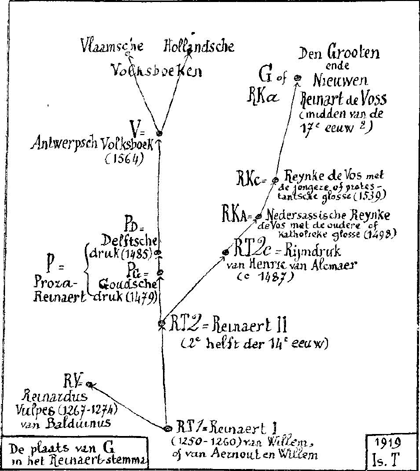 Vlaamsche
Hollandsche
Volksboeken
Den Grooten
ende
G of
Nieuwen
RKa
Reinart de Voss
(midden van de
17e eeuw?)
V=
Antwerpsch Volksboek
(1564)
RKc=
Reynke de Vos met
de jongere of protes-
tantsche glosse (1539)
RKA=
Nedersassische Reynke
de Vos met de oudere of
katholieke glosse (1498)
PD=
Delftsche
druk (1485)
P =
Proza-
Reinaert
PG=
Goudsche
druk (1479)
RT2c= Rijmdruk
van Henric van Alcmaer
(c 1487)
RT2= Reinaert II
(2e helft der 14e eeuw)
RV=
Reinardus
Vulpes (1267-1274)
van Balduinus
RT1= Reinaert I
(1250-1260) van Willem,
of van Aernout en Willem
De plaats van G
in het Reinaert-stemma
1919
Is. T